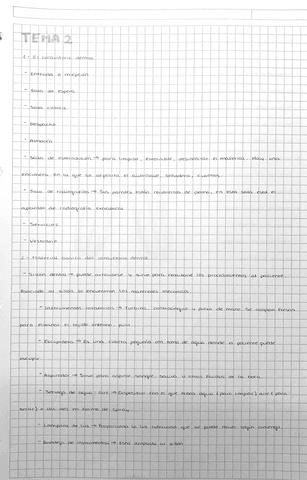 TEMA 2
1.- El consultorio dental.
- Entrada o recepción
- Sala de espera
- Sala clínica
- Despacho
- Almacén
- Sala de esterilización → para limpiar, esterilizar, desinfectar el material. Hay una
encimera en la que se deposita el autoclave, selladora, cubetas.
- Sala de radiografías → Sus paredes están recubiertas de plomo, en esta sala está el
aparato de radiografía
- Servicios
- Vestuario
2.- Material básico del consultorio dental.
- Sillón dental → puede articularse y sirve para realizar los procedimientos al paciente.
Asociado al sillón se encuentran los materiales
- Instrumentos rotatorios → Turbina, contraángulo y pieza de mano. Se acoplan fresas
para eliminar el tejido
- Escupidera → Es una cubeta pequeña con toma de agua donde el paciente puede
escupir.
- Aspirador → Sirve para aspirar sangre, saliva u otros fluidos de la boca.
- Jeringa de agua - aire → Dispositivo con el que sale agua (para limpiar) aire (para
secar) o las dos en forma de spray.
- Lámpara de luz → Proporciona la luz que se puede mover según convenga.
- Bandeja de instrumentos → Está al sillón.